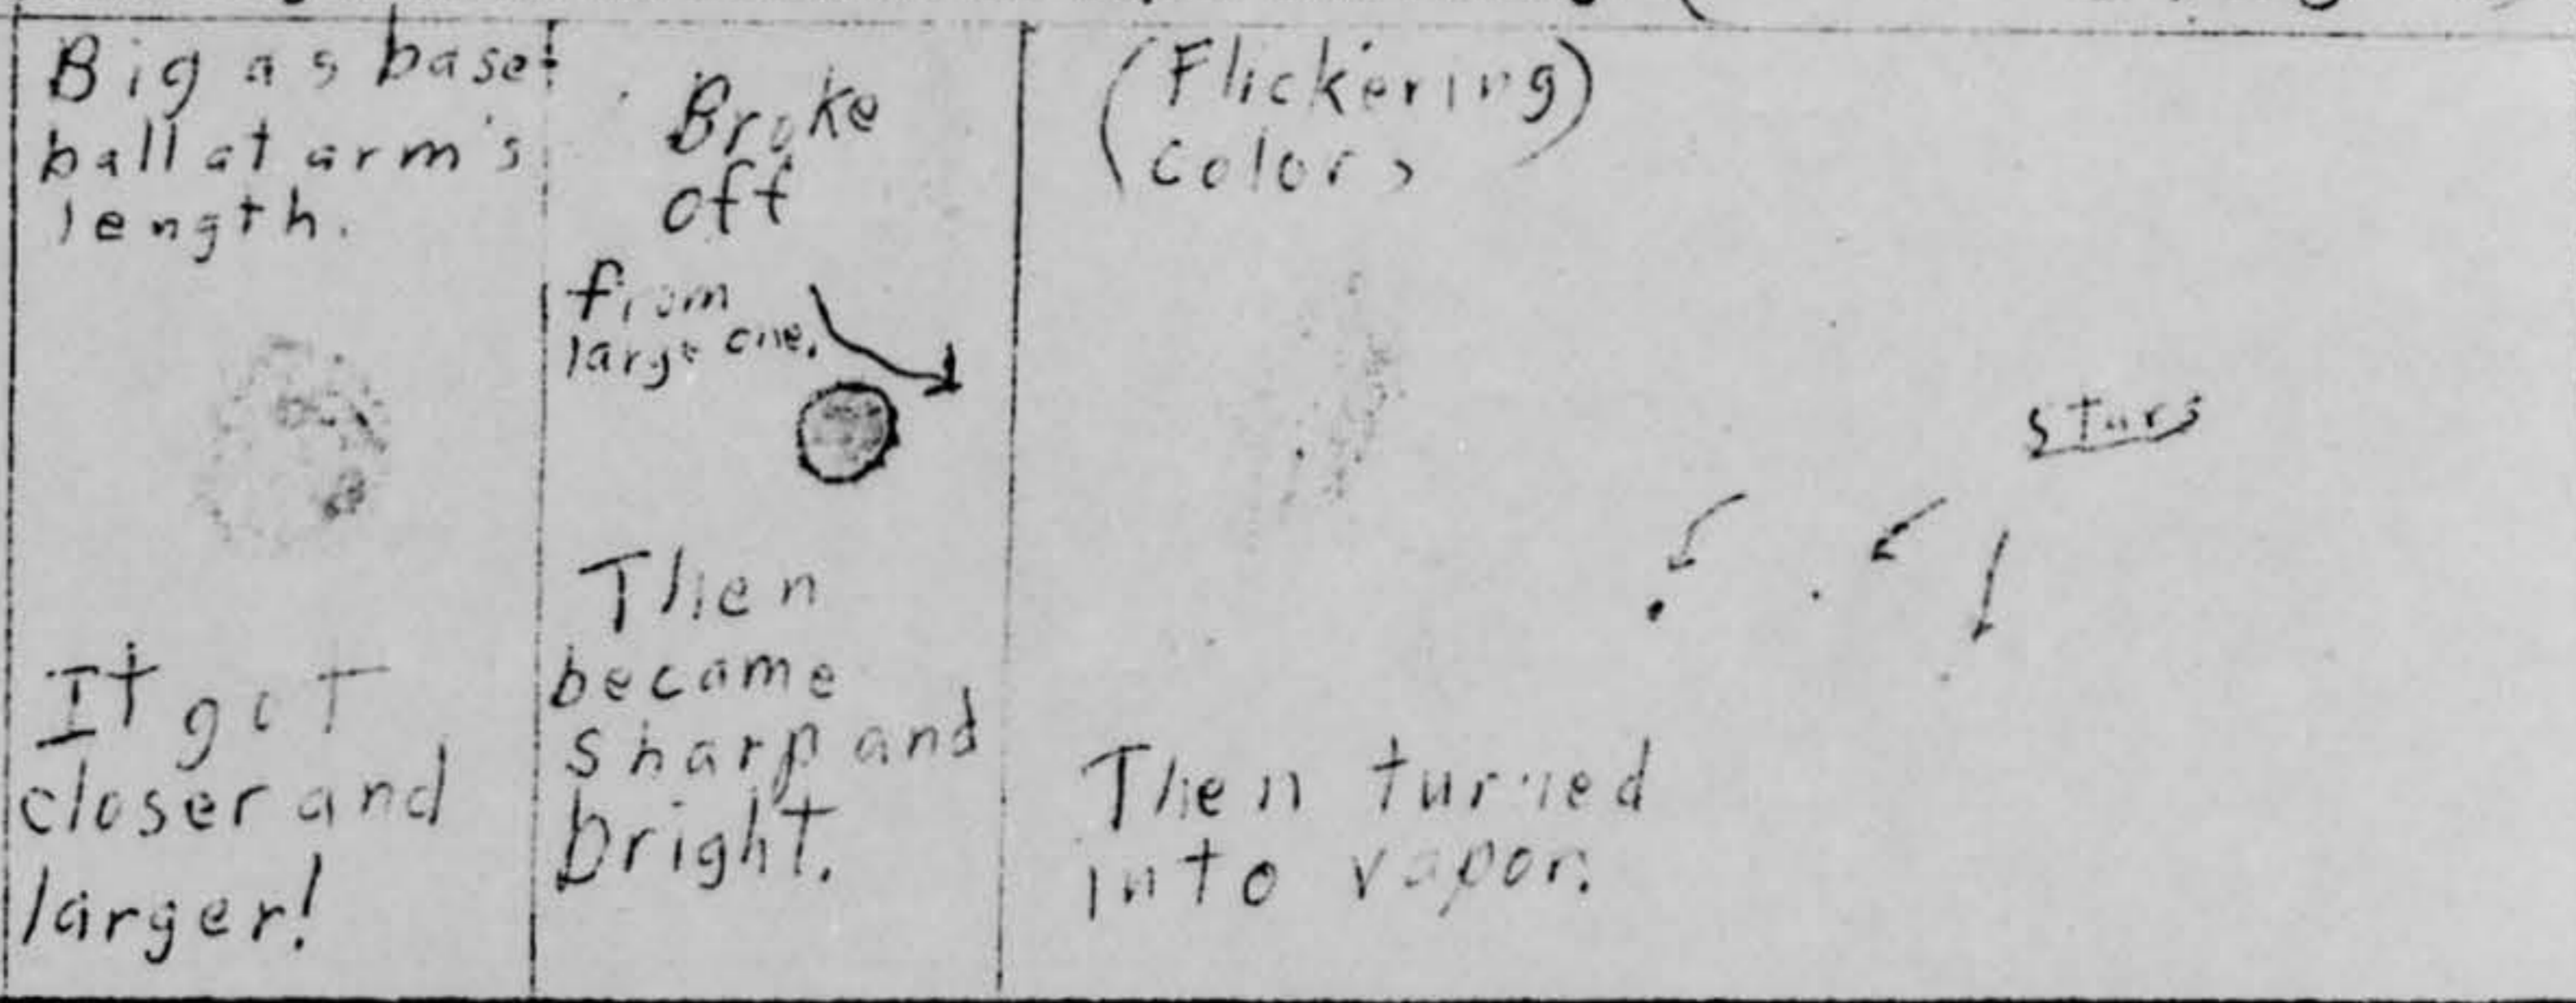 Big as base-
ball at arm's
length.
It got
closer and
larger!
Broke
off
from
large one.
Then
became
sharp and
bright.
(Flickering)
colors
stars
Then turned
into vapor.